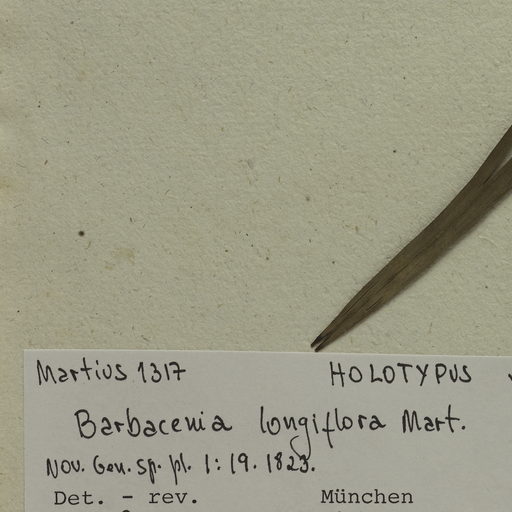 Martius 1317 HOLOTYPUS
Barbacenia longiflora Mart.
Nov. Gen. Sp. pl. 1:19. 1823.
Det. - rev. München